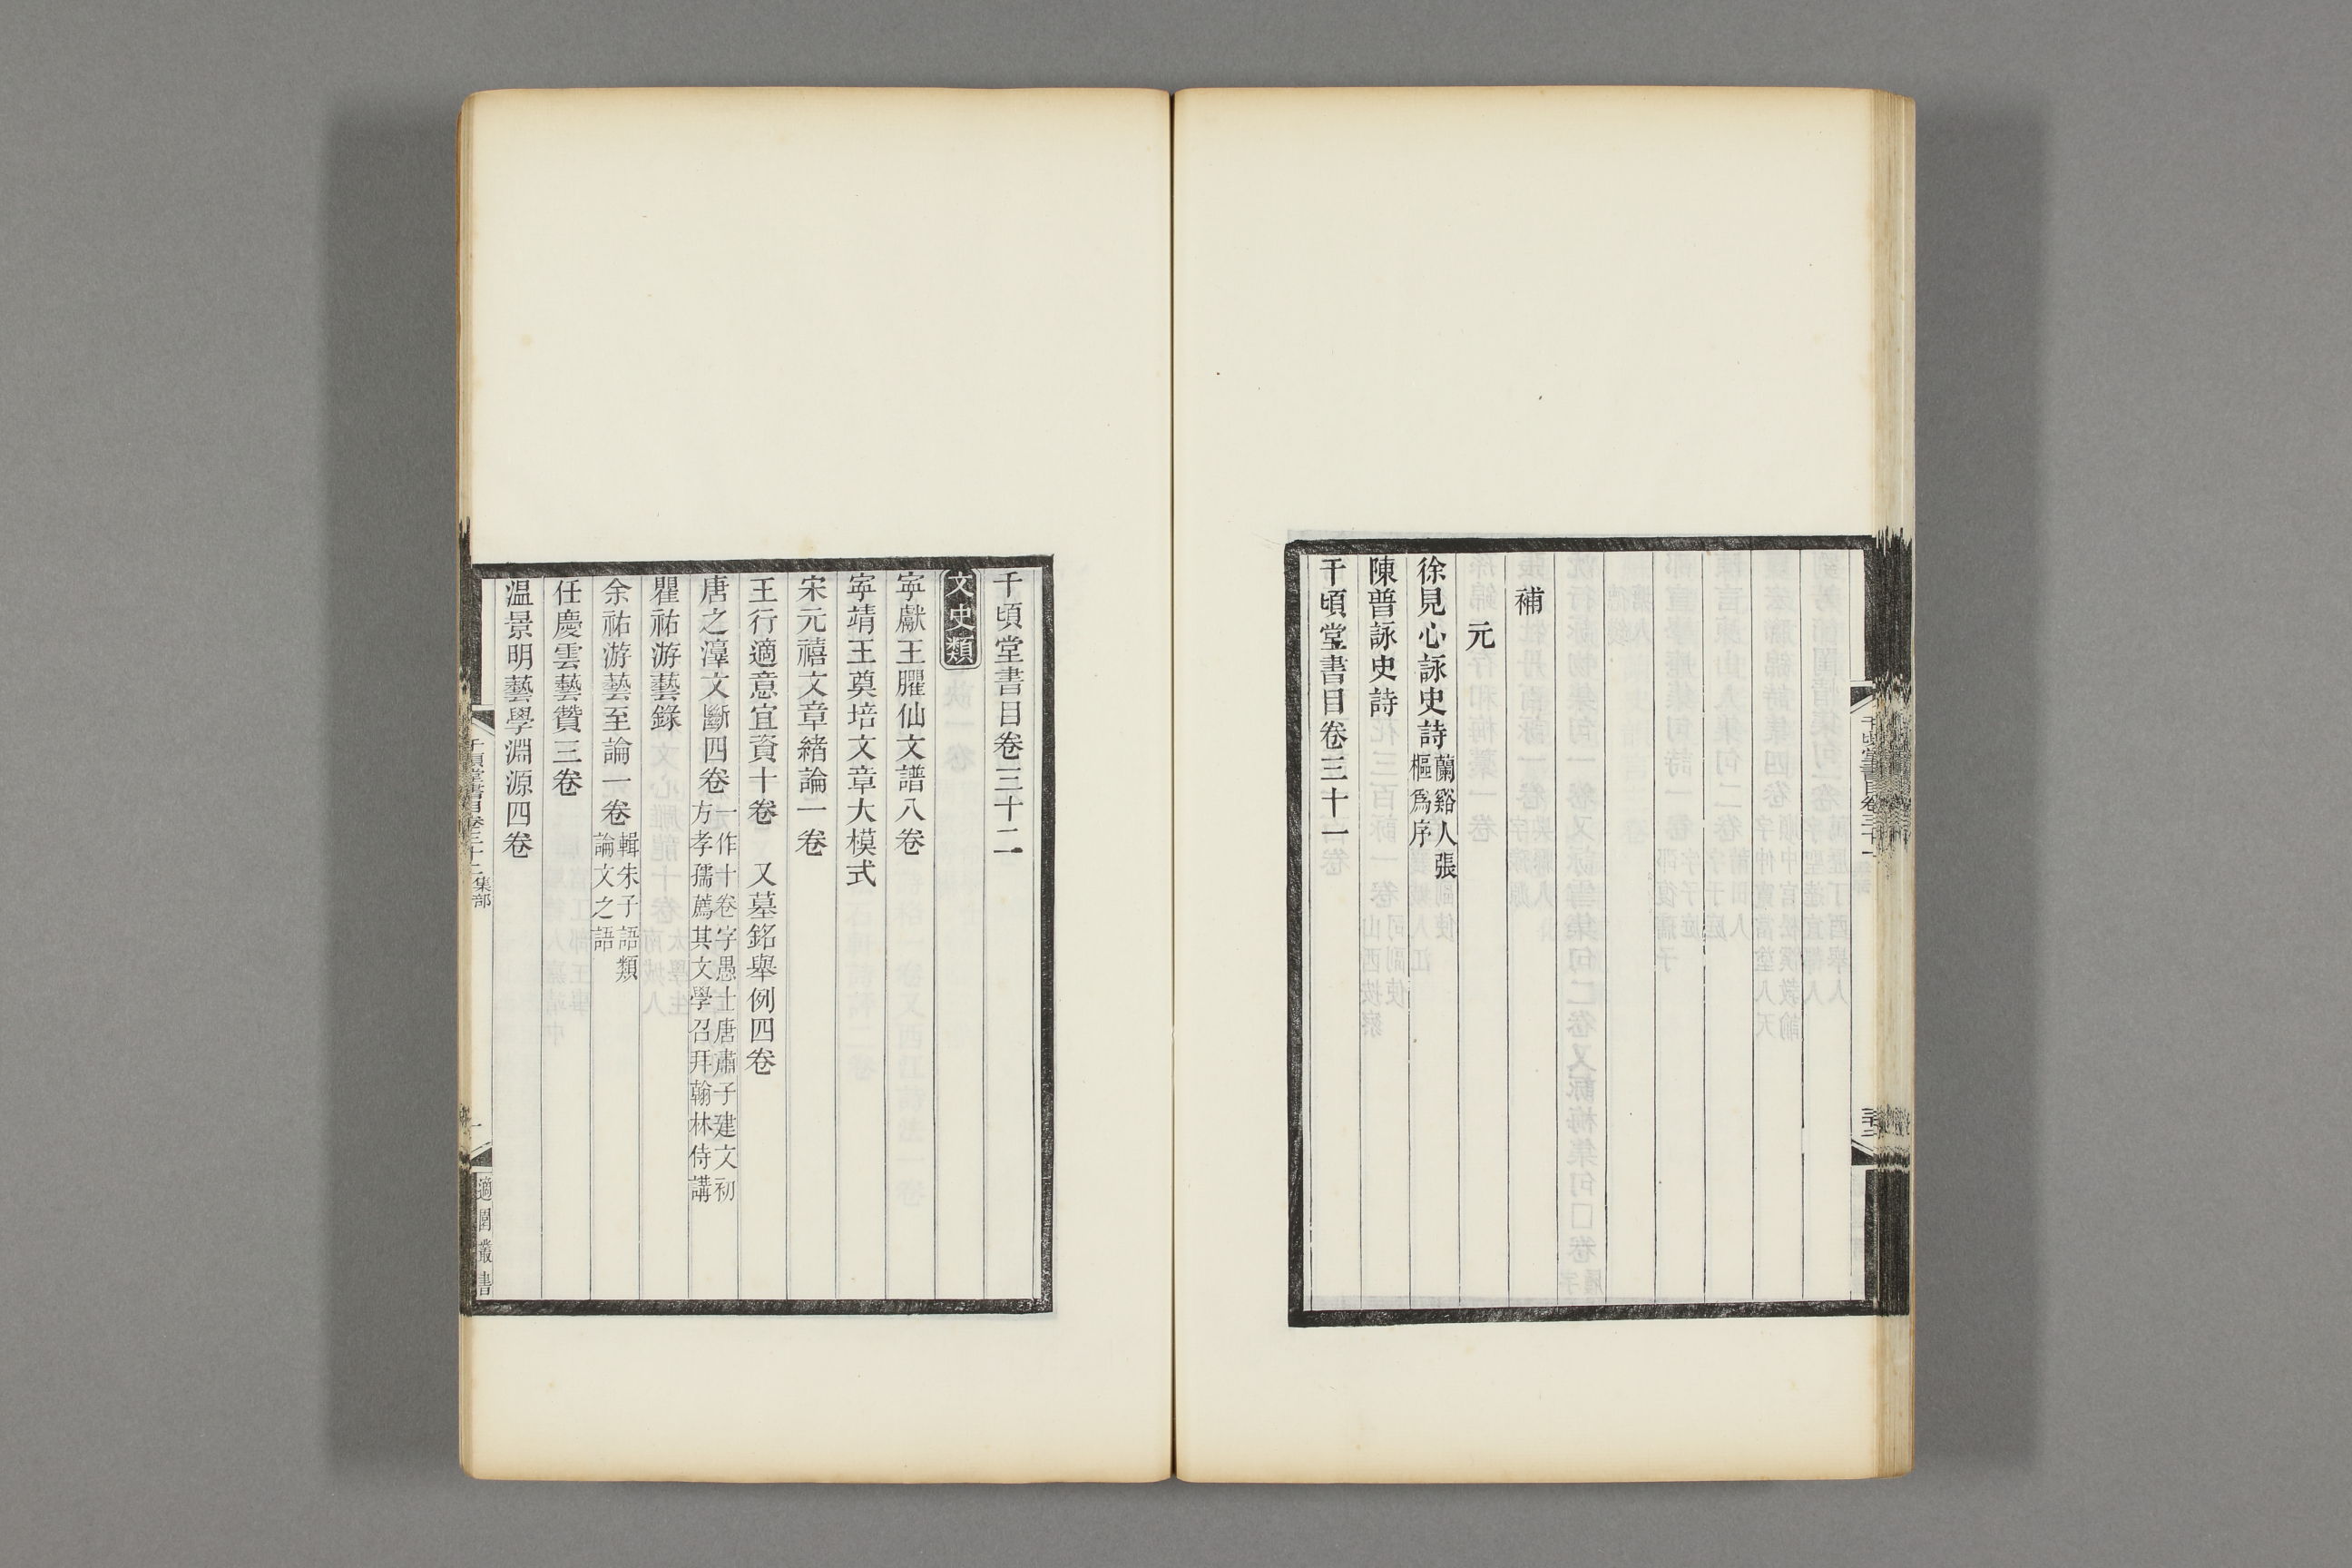 補
元
徐見心詠史詩蘭谿人張
樞爲序
陳普詠史詩
千頃堂書目卷三十一
千頃堂書目卷三十一
千頃堂書目卷三十二
文史類
寜獻王臞仙文譜八卷
寜靖王奠培文章大模式
宋元禧文章緒論一卷
王行適意宜資十卷 又墓銘舉例四卷
唐之漳文斷四卷一作十卷字愚士唐肅子建文初
方孝孺薦其文學召拜翰林侍講
瞿祐游藝錄
余祐游藝至論一卷輯朱子語類
論文之語
任慶雲藝贊三卷
温景明藝學淵源四卷
千頃堂書目卷三十二集部
一
適園叢書